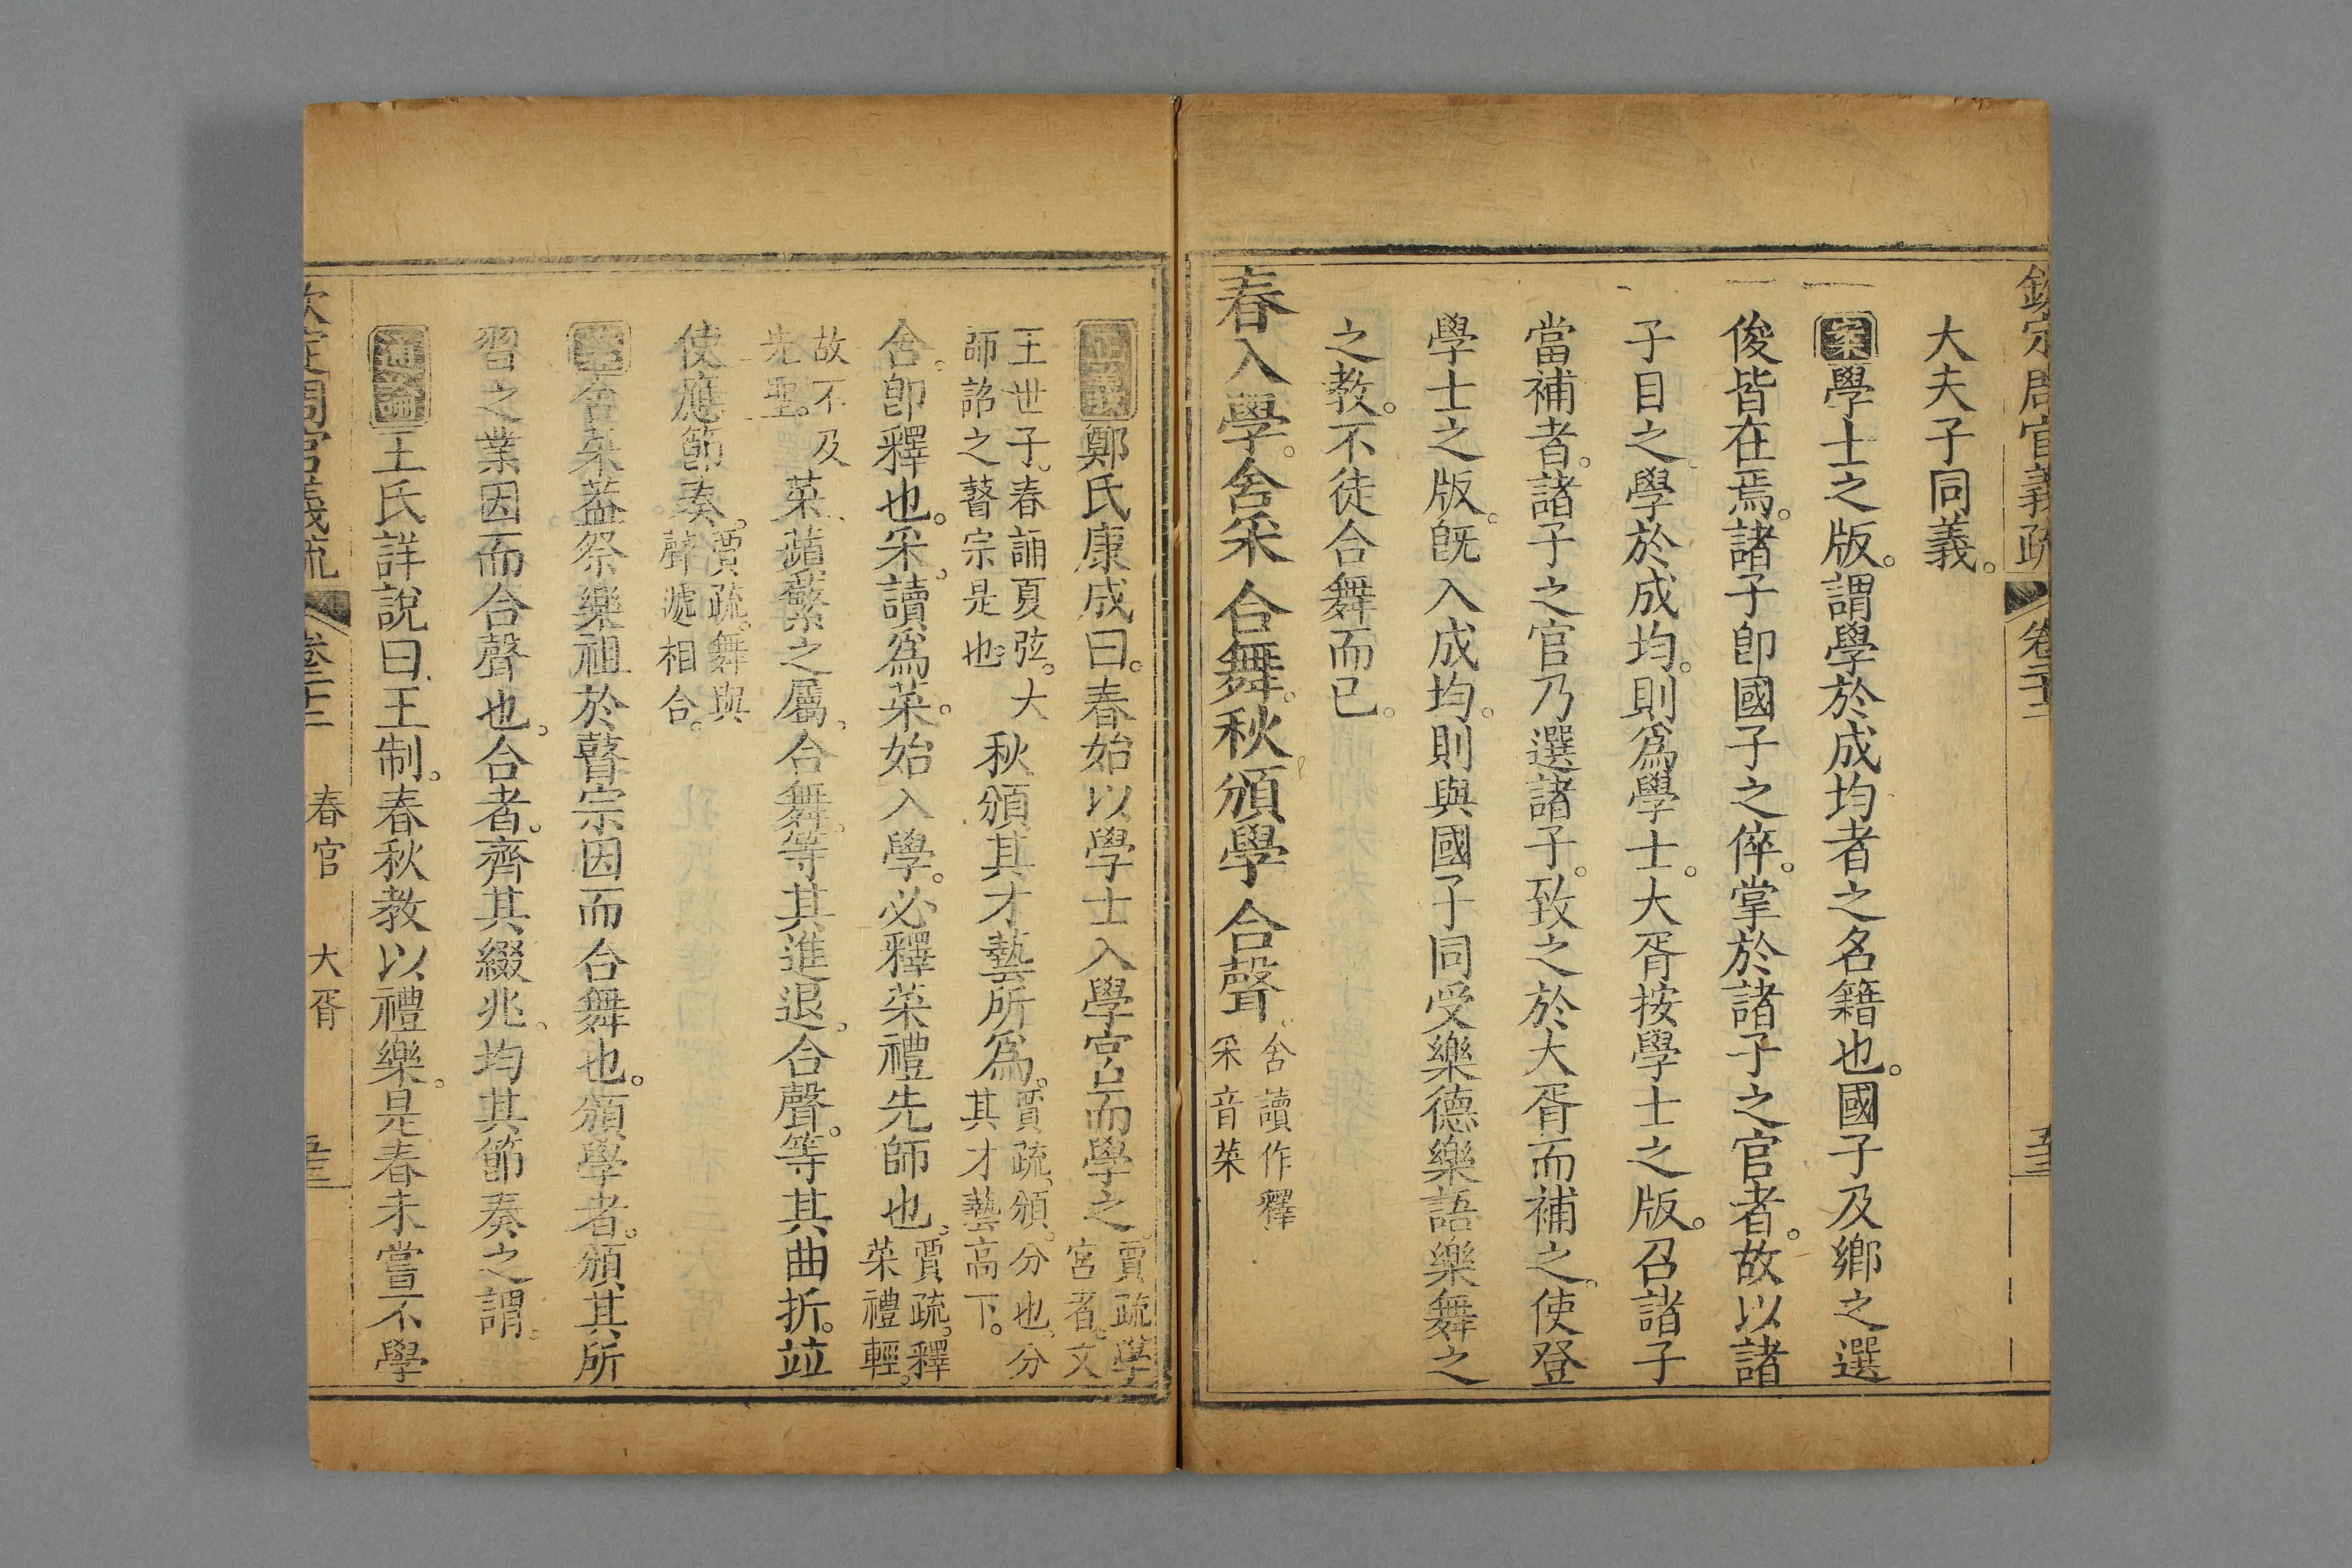 欽定周官義疏 卷二十二
大夫子同義。
案學士之版。謂學於成均者之名籍也。國子及鄉之選
俊皆在焉。諸子卽國子之倅。掌於諸子之官者。故以諸
子目之學於成均。則爲學士。大胥按學士之版。召諸子
當補者。諸子之官乃選諸子。致之於大胥而補之。使登
學士之版。旣入成均。則與國子同受樂德樂語樂舞之
之教。不徒合舞而已。
春入學。舍采合舞。秋頒學合聲。舍讀作釋
采音菜
正義鄭氏康成曰。春始以學士入學宮而學之。賈疏。學
宮者。文
王世子。春誦夏弦。大
師詔之瞽宗是也。秋頒其才藝所爲。賈疏。頒。分也。分
其才藝高下。
舍。卽釋也。采。讀爲菜。始入學。必釋菜禮先師也。賈疏。釋
菜禮輕。
故不及
先聖。菜。蘋蘩之屬。合舞。等其進退。合聲。等其曲折。竝
使應節奏。賈疏。舞與
聲遞相合。
案舍菜葢祭樂祖於瞽宗因而合舞也。頒學者。頒其所
習之業因而合聲也。合者。齊其綴兆。均其節奏之謂。
通論王氏詳說曰。王制。春秋教以禮樂。是春未嘗不學
欽定周官義疏 卷二十二 春官 大胥